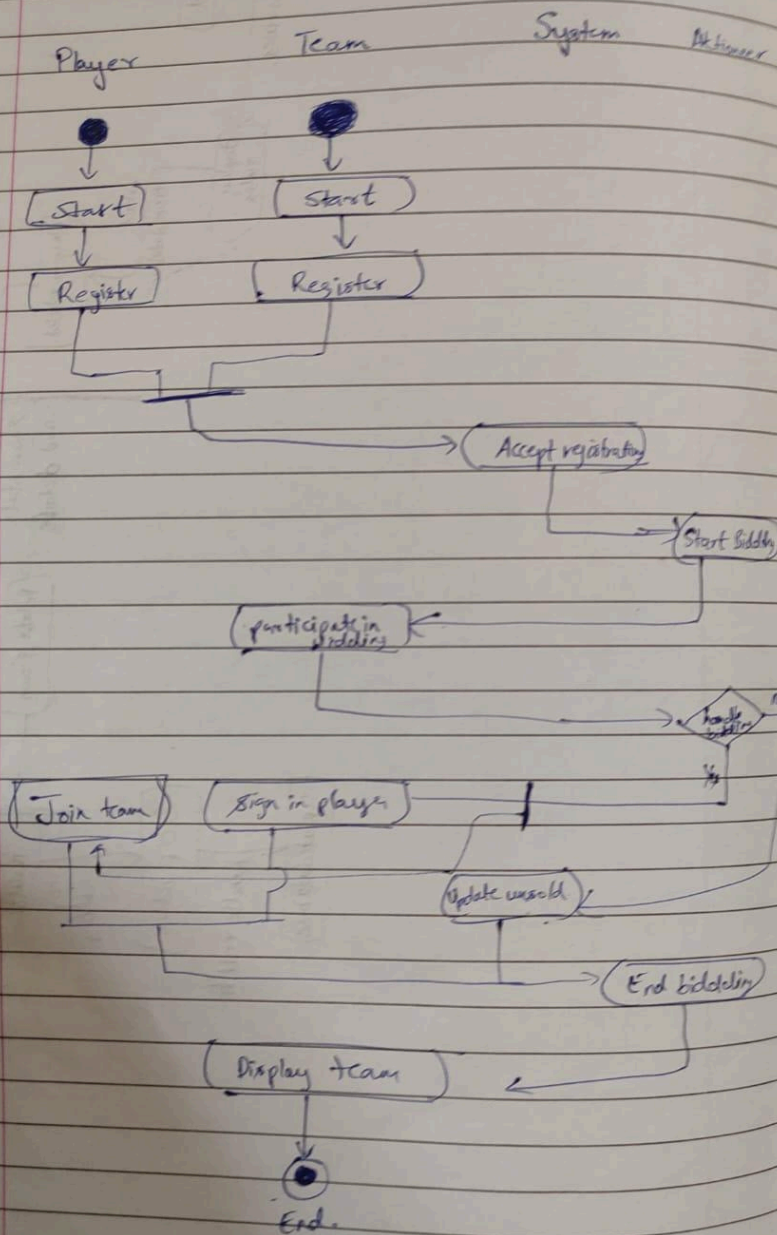 Player
Team
System
Start
Start
Register
Register
Accept registration
Start Bidding
participate in
bidding
handle
bidding
Yes
Join team
Sign in player
Update unsold
End bidding
Display team
End.